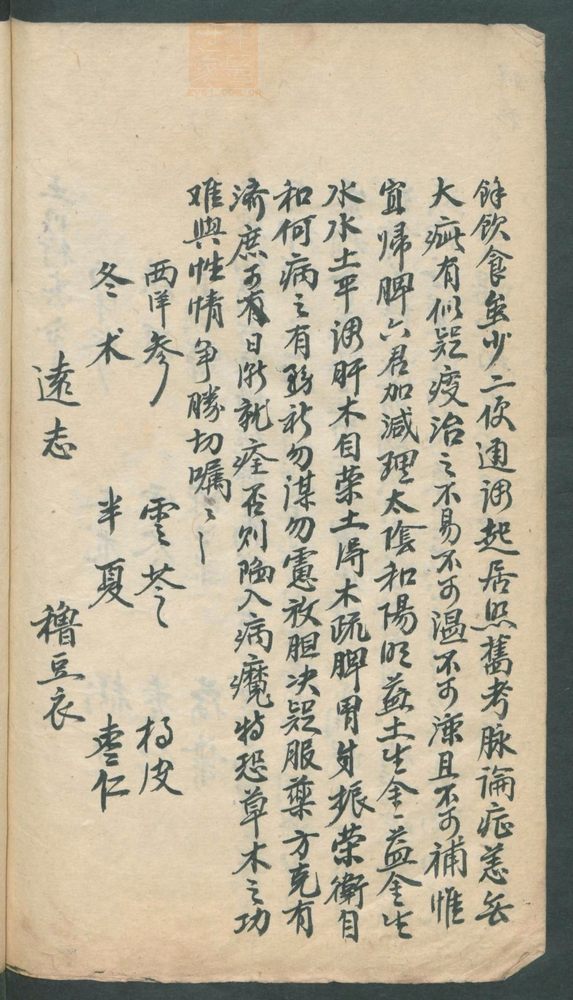 餘飲食無少二便通調起居照舊考脉論症恙無
大疵有似疑疫治之不易不可溫不可凉且不可補惟
宜帰脾六君加減理太陰和陽明益土生金益金生
水水土平調肝木自榮土得木疏脾胃自振榮衛自
和何病之有務祈勿謀勿慮放胆决疑服藥方克有
濟庶可有日漸就痊否則陥入病魔特恐草木之功
难與性情争勝切嘱〻
西洋参 雲苓 皮
冬术 半夏 枣仁
遠志 穭豆衣